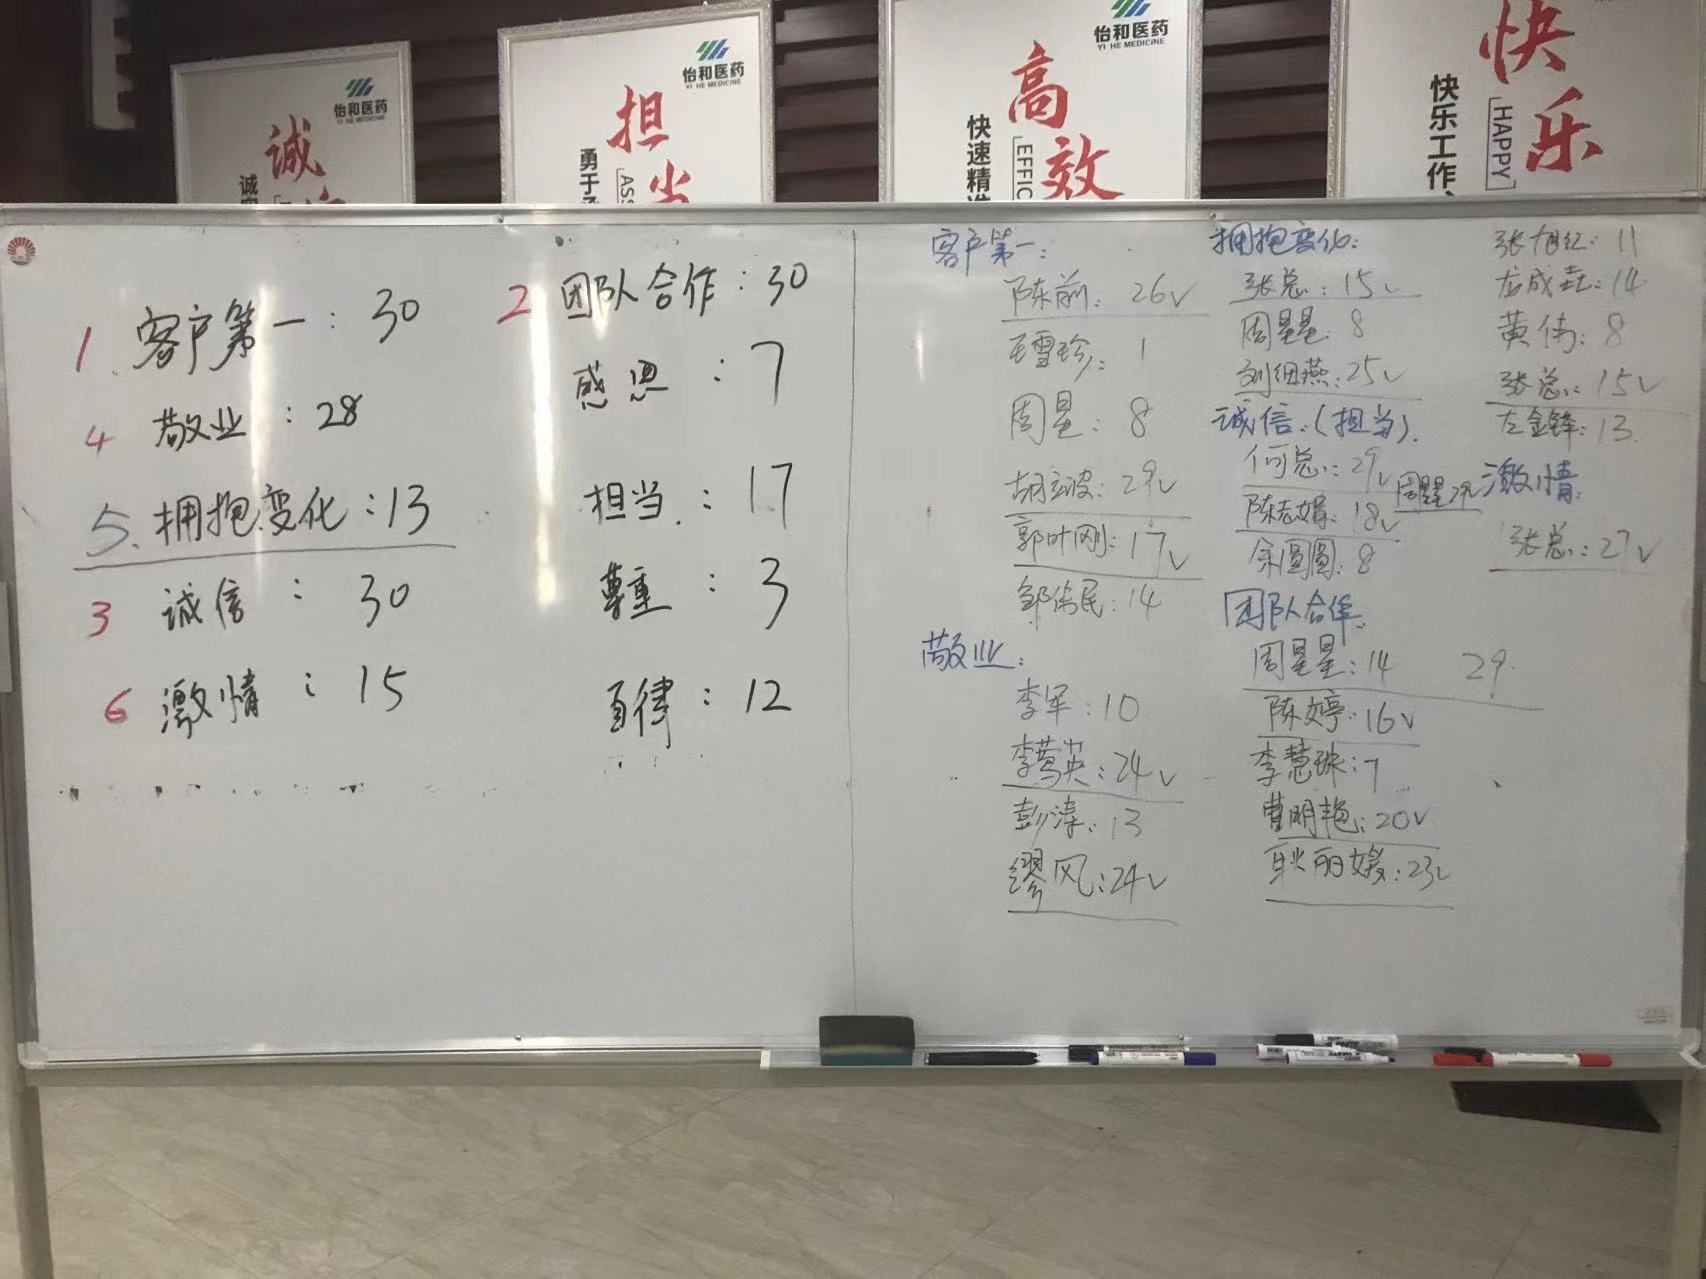 怡和医药
YI HE MEDICINE
诚
怡和医药
YI HE MEDICINE
担
勇于
ASS
怡和医药
YI HE MEDICINE
高效
快速精
EFFIC
快乐
HAPPY
快乐工作、
1 客户第一：30
4 敬业：28
5. 拥抱变化：13
3 诚信：30
6 激情：15
2 团队合作：30
感恩：7
担当：17
尊重：3
自律：12
客户第一：
陈前：26√
王雪珍：1
周星：8
胡立波：29√
郭叶刚：17√
邹伟民：14
敬业：
李军：10
李莺英：24√
彭溁：13
缪风：24√
拥抱变化：
张总：15√
周星星：8
刘细燕：25√
诚信（担当）.
何总：29√
周星星29√
陈志娟：18√
余圆圆：8
团队合作
周星星：14 29
陈婷：16√
李慧珠：7
曹明艳：20√
耿丽媛：23√
张旭红：11
龙成垚：14
黄伟：8
张总：15√
左金锋：13
激情：
张总：27√